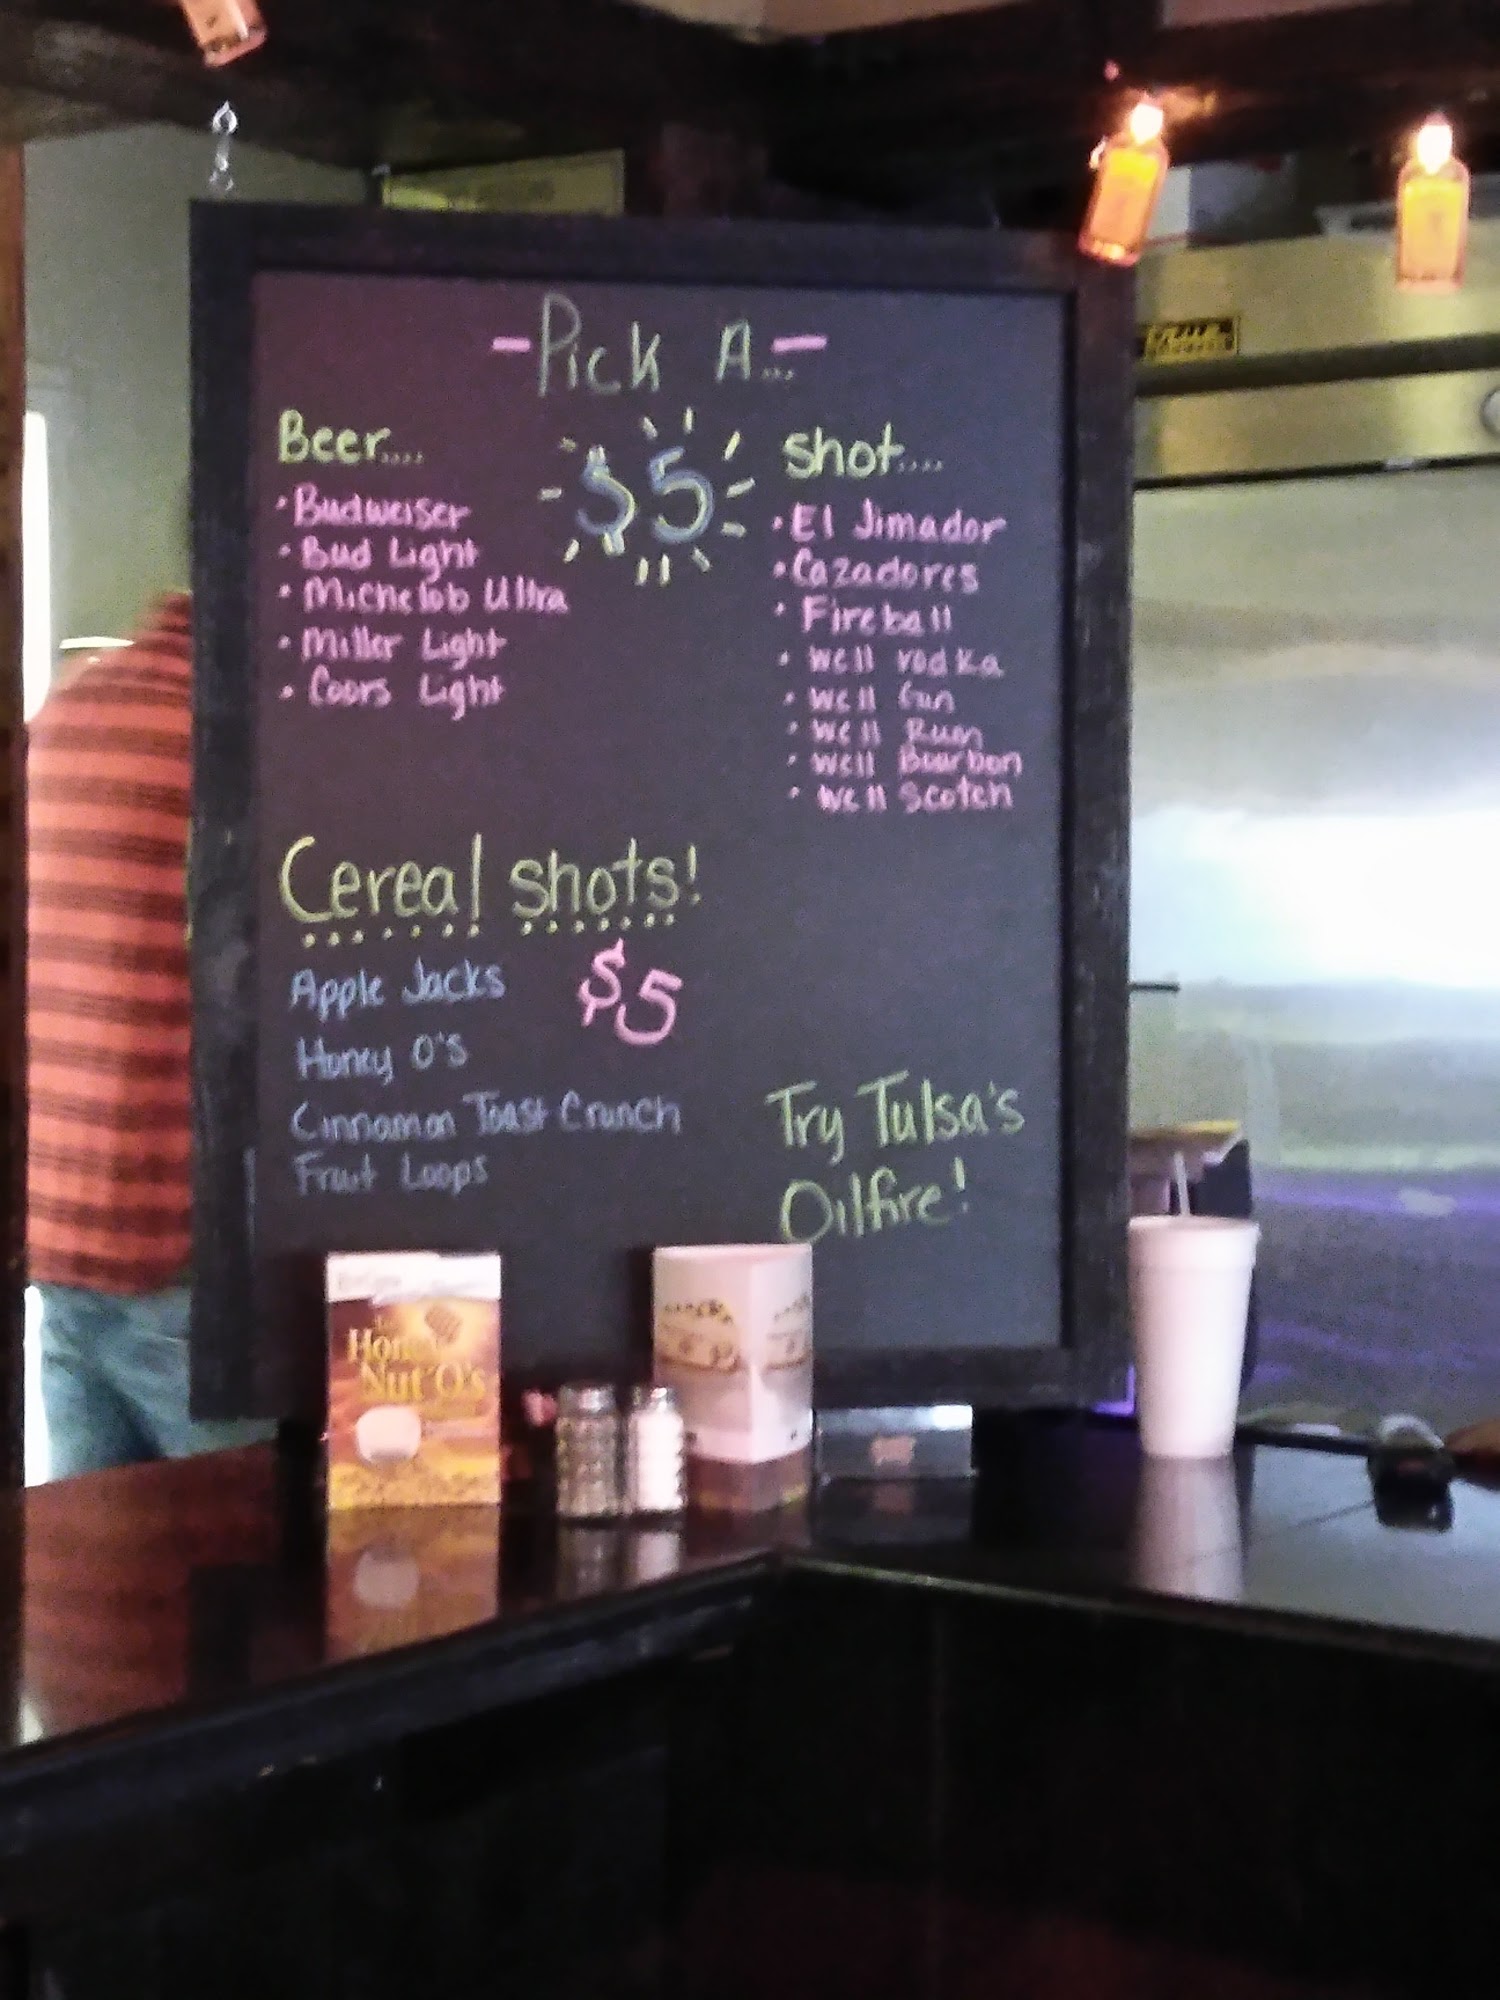 -Pick A...-
$5
Beer....
• Budweiser
• Bud Light
• Michelob Ultra
• Miller Light
• Coors Light
Shot....
• El Jimador
• Cazadores
• Fireball
• Well vodka
• Well Gin
• Well Rum
• Well Bourbon
• Well Scotch
Cereal Shots!
$5
Apple Jacks
Honey O's
Cinnamon Toast Crunch
Fruit Loops
Try Tulsa's
Oilfire!
Honey
Nut'O's
true